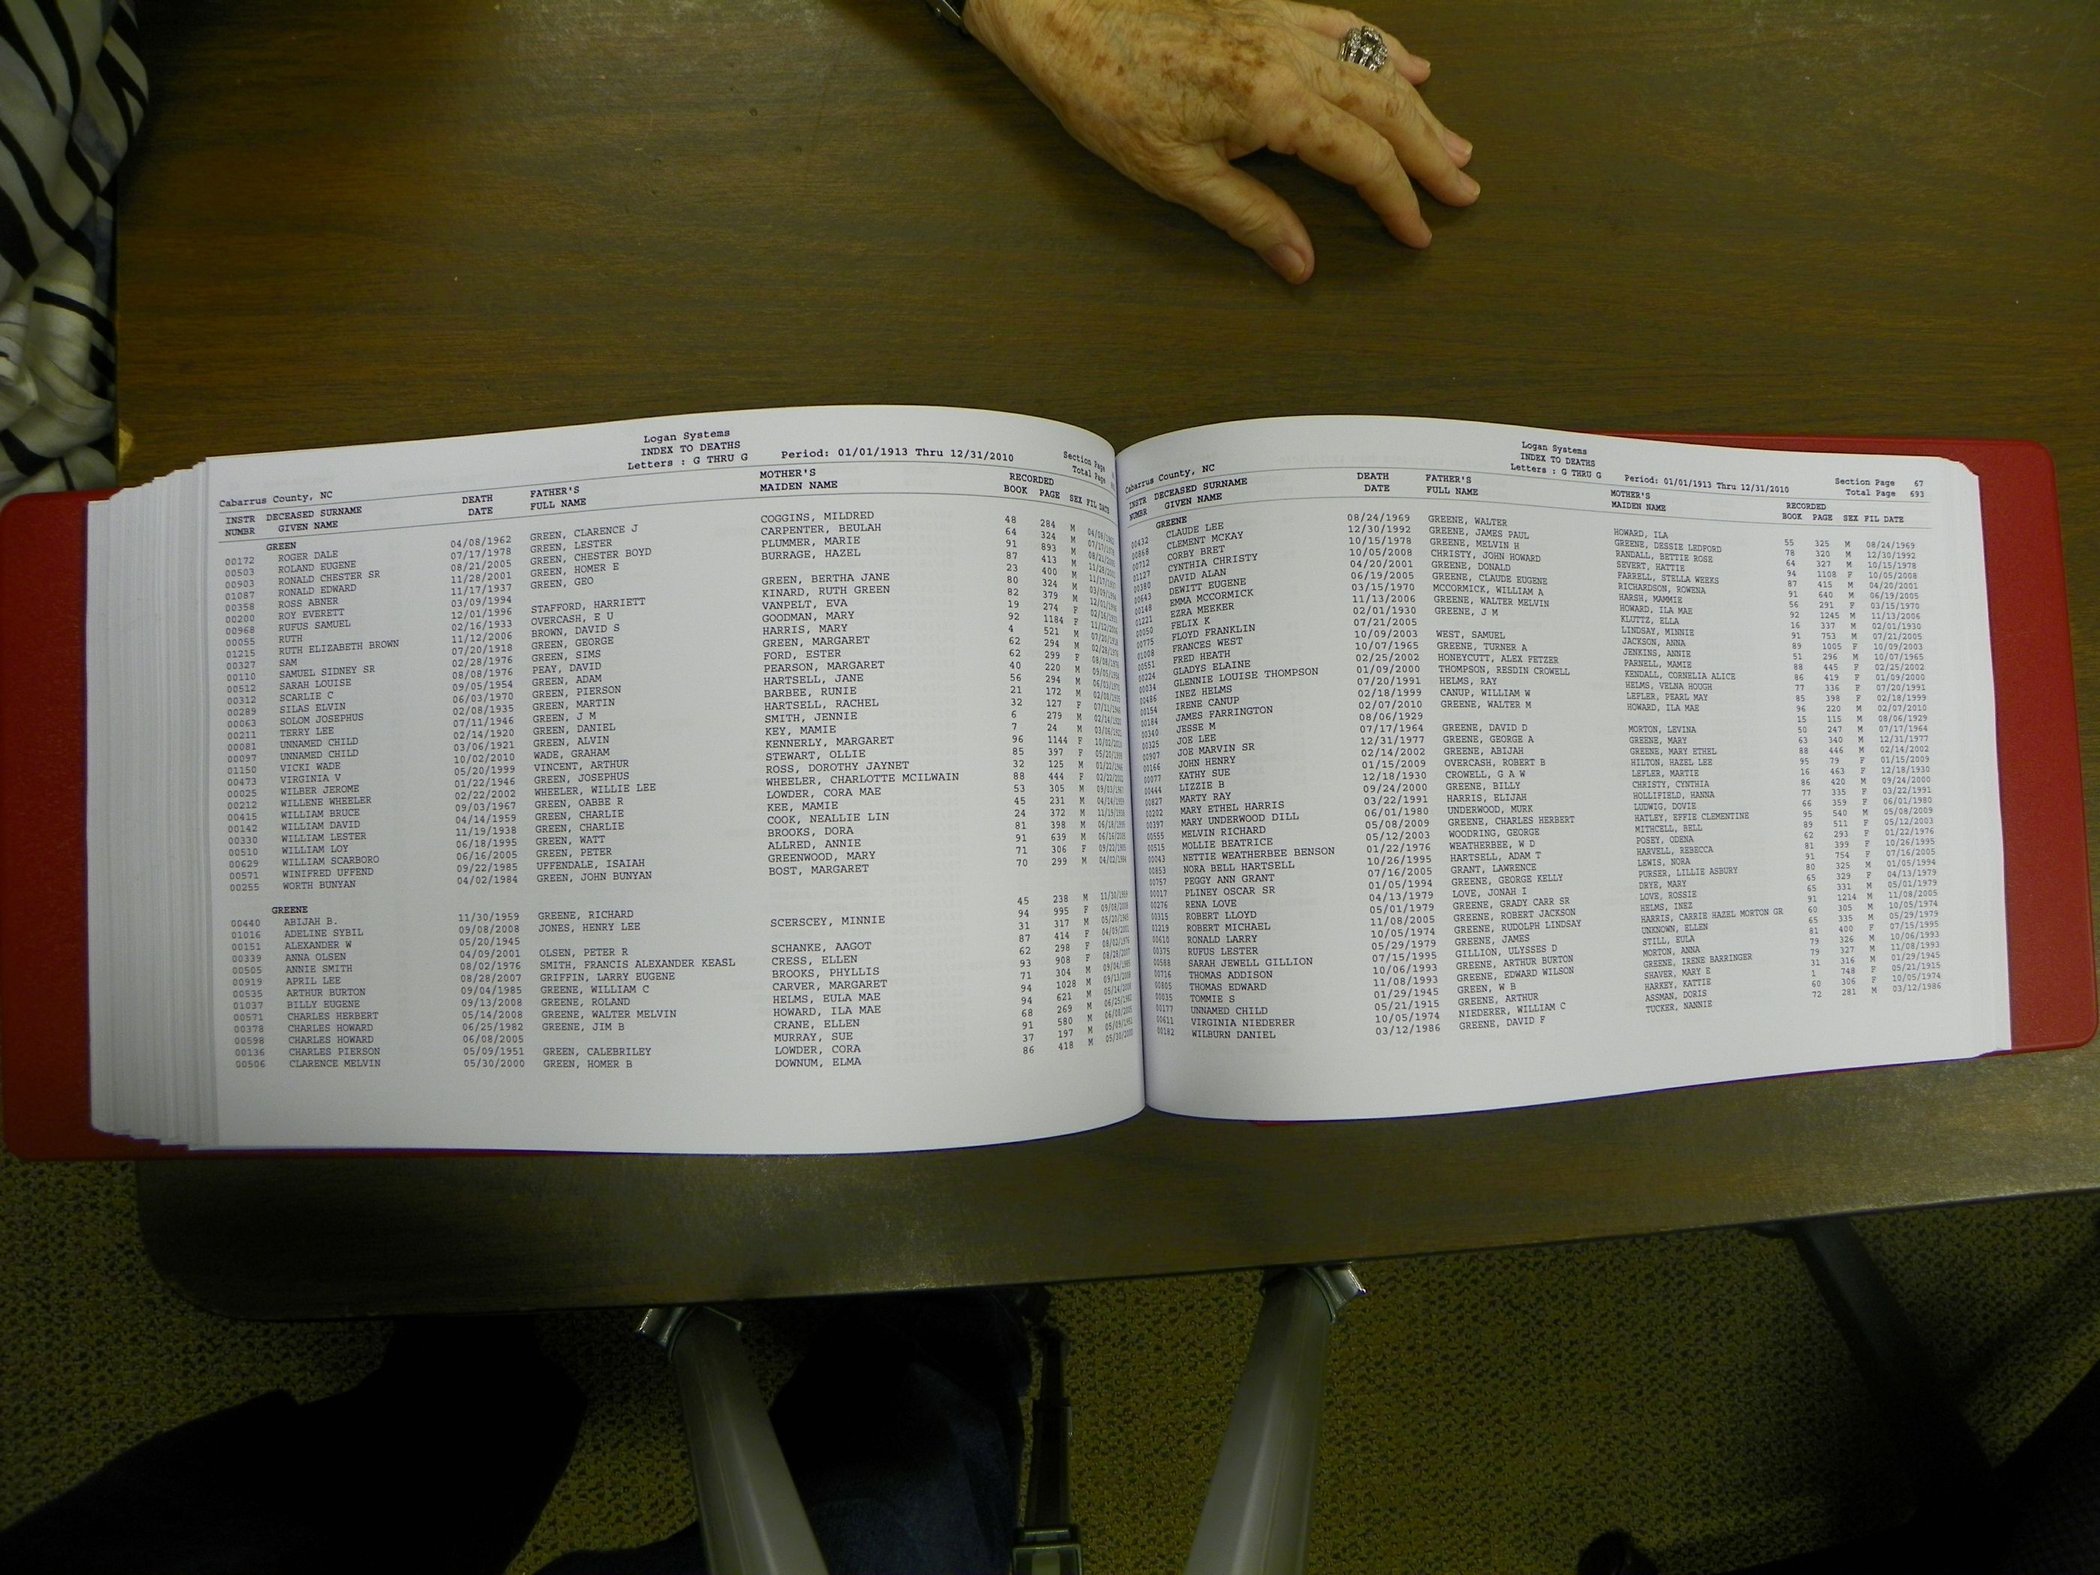 Logan Systems
INDEX TO DEATHS
Letters : G THRU G Period: 01/01/1913 Thru 12/31/2010
Section Page
Total Page
Cabarrus County, NC
INSTR DECEASED SURNAME DEATH FATHER'S MOTHER'S RECORDED
NUMBR GIVEN NAME DATE FULL NAME MAIDEN NAME BOOK PAGE SEX FIL DATE
GREEN
00172 ROGER DALE 04/08/1962 GREEN, CLARENCE J COGGINS, MILDRED 48 284 M
00503 ROLAND EUGENE 07/17/1978 GREEN, LESTER CARPENTER, BEULAH 64 324 M
00903 RONALD CHESTER SR 08/21/2005 GREEN, CHESTER BOYD PLUMMER, MARIE 91 893 M
01087 RONALD EDWARD 11/28/2001 GREEN, HOMER E BURRAGE, HAZEL 87 413 M
00358 ROSS ABNER 11/17/1937 GREEN, GEO 23 400 M
00200 ROY EVERETT 03/09/1994 GREEN, BERTHA JANE 80 324 M
00968 RUFUS SAMUEL 12/01/1996 STAFFORD, HARRIETT KINARD, RUTH GREEN 82 379 M
00055 RUTH 02/16/1933 OVERCASH, E U VANPELT, EVA 19 274 F
01215 RUTH ELIZABETH BROWN 11/12/2006 BROWN, DAVID S GOODMAN, MARY 92 1184 F
00327 SAM 07/20/1918 GREEN, GEORGE HARRIS, MARY 4 521 M
00110 SAMUEL SIDNEY SR 02/28/1976 GREEN, SIMS GREEN, MARGARET 62 294 M
00512 SARAH LOUISE 08/08/1976 PEAY, DAVID FORD, ESTER 62 299 F
00312 SCARLIE C 09/05/1954 GREEN, ADAM PEARSON, MARGARET 40 220 M
00289 SILAS ELVIN 06/03/1970 GREEN, PIERSON HARTSELL, JANE 56 294 M
00063 SOLOM JOSEPHUS 02/08/1935 GREEN, MARTIN BARBEE, RUNIE 21 172 M
00211 TERRY LEE 07/11/1946 GREEN, J M HARTSELL, RACHEL 32 127 F
00081 UNNAMED CHILD 02/14/1920 GREEN, DANIEL SMITH, JENNIE 6 279 M
00097 UNNAMED CHILD 03/06/1921 GREEN, ALVIN KEY, MAMIE 7 24 M
01150 VICKI WADE 10/02/2010 WADE, GRAHAM KENNERLY, MARGARET 96 1144 F
00473 VIRGINIA V 05/20/1999 VINCENT, ARTHUR STEWART, OLLIE 85 397 F
00025 WILBER JEROME 01/22/1946 GREEN, JOSEPHUS ROSS, DOROTHY JAYNET 32 125 M
00212 WILLENE WHEELER 02/22/2002 WHEELER, WILLIE LEE WHEELER, CHARLOTTE MCILWAIN 88 444 F
00415 WILLIAM BRUCE 09/03/1967 GREEN, OABBE R LOWDER, CORA MAE 53 305 M
00142 WILLIAM DAVID 04/14/1959 GREEN, CHARLIE KEE, MAMIE 45 231 M
00330 WILLIAM LESTER 11/19/1938 GREEN, CHARLIE COOK, NEALLIE LIN 24 372 M
00510 WILLIAM LOY 06/18/1995 GREEN, WATT BROOKS, DORA 81 398 M
00629 WILLIAM SCARBORO 06/16/2005 GREEN, PETER ALLRED, ANNIE 91 639 M
00571 WINIFRED UFFEND 09/22/1985 UFFENDALE, ISAIAH GREENWOOD, MARY 71 306 F
00255 WORTH BUNYAN 04/02/1984 GREEN, JOHN BUNYAN BOST, MARGARET 70 299 M
GREENE
00440 ABIJAH B. 11/30/1959 GREENE, RICHARD 45 238 M
01016 ADELINE SYBIL 09/08/2008 JONES, HENRY LEE SCERSCEY, MINNIE 94 995 F
00151 ALEXANDER W 05/20/1945 31 317 M
00339 ANNA OLSEN 04/09/2001 OLSEN, PETER R SCHANKE, AAGOT 87 414 F
00505 ANNIE SMITH 08/02/1976 SMITH, FRANCIS ALEXANDER KEASL CRESS, ELLEN 62 298 F
00919 APRIL LEE 08/28/2007 GRIFFIN, LARRY EUGENE BROOKS, PHYLLIS 93 908 F
00535 ARTHUR BURTON 09/04/1985 GREENE, WILLIAM C CARVER, MARGARET 71 304 M
01037 BILLY EUGENE 09/13/2008 GREENE, ROLAND HELMS, EULA MAE 94 1028 M
00571 CHARLES HERBERT 05/14/2008 GREENE, WALTER MELVIN HOWARD, ILA MAE 94 621 M
00378 CHARLES HOWARD 06/25/1982 GREENE, JIM B CRANE, ELLEN 68 269 M
00598 CHARLES HOWARD 06/08/2005 MURRAY, SUE 91 580 M
00136 CHARLES PIERSON 05/09/1951 GREEN, CALEBRILEY LOWDER, CORA 37 197 M
00506 CLARENCE MELVIN 05/30/2000 GREEN, HOMER B DOWNUM, ELMA 86 418 M
Logan Systems
INDEX TO DEATHS
Letters : G THRU G Period: 01/01/1913 Thru 12/31/2010
Section Page 67
Total Page 693
Cabarrus County, NC
INSTR DECEASED SURNAME DEATH FATHER'S MOTHER'S RECORDED
NUMBR GIVEN NAME DATE FULL NAME MAIDEN NAME BOOK PAGE SEX FIL DATE
GREENE
00432 CLAUDE LEE 08/24/1969 GREENE, WALTER HOWARD, ILA 55 325 M 08/24/1969
00868 CLEMENT MCKAY 12/30/1992 GREENE, JAMES PAUL GREENE, DESSIE LEDFORD 78 320 M 12/30/1992
00712 CORBY BRET 10/15/1978 GREENE, MELVIN H RANDALL, BETTIE ROSE 64 327 M 10/15/1978
01127 CYNTHIA CHRISTY 10/05/2008 CHRISTY, JOHN HOWARD SEVERT, HATTIE 94 1108 F 10/05/2008
00380 DAVID ALAN 04/20/2001 GREENE, DONALD FARRELL, STELLA WEEKS 87 415 M 04/20/2001
00643 DEWITT EUGENE 06/19/2005 GREENE, CLAUDE EUGENE RICHARDSON, ROWENA 91 640 M 06/19/2005
00148 EMMA MCCORMICK 03/15/1970 MCCORMICK, WILLIAM A HARSH, MAMMIE 56 291 F 03/15/1970
01221 EZRA MEEKER 11/13/2006 GREENE, WALTER MELVIN HOWARD, ILA MAE 92 1245 M 11/13/2006
00050 FELIX K 02/01/1930 GREENE, J M KLUTTZ, ELLA 16 337 M 02/01/1930
00775 FLOYD FRANKLIN 07/21/2005 LINDSAY, MINNIE 91 753 M 07/21/2005
01008 FRANCES WEST 10/09/2003 WEST, SAMUEL JACKSON, ANNA 89 1005 F 10/09/2003
00551 FRED HEATH 10/07/1965 GREENE, TURNER A JENKINS, ANNIE 51 296 M 10/07/1965
00224 GLADYS ELAINE 02/25/2002 HONEYCUTT, ALEX FETZER PARNELL, MAMIE 88 445 F 02/25/2002
00034 GLENNIE LOUISE THOMPSON 01/09/2000 THOMPSON, RESDIN CROWELL KENDALL, CORNELIA ALICE 86 419 F 01/09/2000
00486 INEZ HELMS 07/20/1991 HELMS, RAY HELMS, VELNA HOUGH 77 336 F 07/20/1991
00154 IRENE CANUP 02/18/1999 CANUP, WILLIAM W LEFLER, PEARL MAY 85 398 F 02/18/1999
00184 JAMES FARRINGTON 02/07/2010 GREENE, WALTER M HOWARD, ILA MAE 96 220 M 02/07/2010
00340 JESSE M 08/06/1929 15 115 M 08/06/1929
00325 JOE LEE 07/17/1964 GREENE, DAVID D MORTON, LEVINA 50 247 M 07/17/1964
00907 JOE MARVIN SR 12/31/1977 GREENE, GEORGE A GREENE, MARY 63 340 M 12/31/1977
00166 JOHN HENRY 02/14/2002 GREENE, ABIJAH GREENE, MARY ETHEL 88 446 M 02/14/2002
00077 KATHY SUE 01/15/2009 OVERCASH, ROBERT B HILTON, HAZEL LEE 95 79 F 01/15/2009
00444 LIZZIE B 12/18/1930 CROWELL, G A W LEFLER, MARTIE 16 463 F 12/18/1930
00827 MARTY RAY 09/24/2000 GREENE, BILLY CHRISTY, CYNTHIA 86 420 M 09/24/2000
00202 MARY ETHEL HARRIS 03/22/1991 HARRIS, ELIJAH HOLLIFIELD, HANNA 77 335 F 03/22/1991
00397 MARY UNDERWOOD DILL 06/01/1980 UNDERWOOD, MURK LUDWIG, DOVIE 66 359 F 06/01/1980
00555 MELVIN RICHARD 05/08/2009 GREENE, CHARLES HERBERT HATLEY, EFFIE CLEMENTINE 95 540 M 05/08/2009
00515 MOLLIE BEATRICE 05/12/2003 WOODRING, GEORGE MITHCELL, BELL 89 511 F 05/12/2003
00043 NETTIE WEATHERBEE BENSON 01/22/1976 WEATHERBEE, W D POSEY, ODENA 62 293 F 01/22/1976
00853 NORA BELL HARTSELL 10/26/1995 HARTSELL, ADAM T HARVELL, REBECCA 81 399 F 10/26/1995
00757 PEGGY ANN GRANT 07/16/2005 GRANT, LAWRENCE LEWIS, NORA 91 754 F 07/16/2005
00017 PLINEY OSCAR SR 01/05/1994 GREENE, GEORGE KELLY PURSER, LILLIE ASBURY 80 325 M 01/05/1994
00276 RENA LOVE 04/13/1979 LOVE, JONAH I DRYE, MARY 65 329 F 04/13/1979
00315 ROBERT LLOYD 05/01/1979 GREENE, GRADY CARR SR LOVE, ROSSIE 65 331 M 05/01/1979
01219 ROBERT MICHAEL 11/08/2005 GREENE, ROBERT JACKSON HELMS, INEZ 91 1214 M 11/08/2005
00610 RONALD LARRY 10/05/1974 GREENE, RUDOLPH LINDSAY HARRIS, CARRIE HAZEL MORTON GR 60 305 M 10/05/1974
00375 RUFUS LESTER 05/29/1979 GREENE, JAMES UNKNOWN, ELLEN 65 335 M 05/29/1979
00588 SARAH JEWELL GILLION 07/15/1995 GILLION, ULYSSES D STILL, EULA 81 400 F 07/15/1995
00716 THOMAS ADDISON 10/06/1993 GREENE, ARTHUR BURTON MORTON, ANNA 79 326 M 10/06/1993
00805 THOMAS EDWARD 11/08/1993 GREENE, EDWARD WILSON GREENE, IRENE BARRINGER 79 327 M 11/08/1993
00035 TOMMIE S 01/29/1945 GREENE, W B SHAVER, MARY E 31 316 M 01/29/1945
00177 UNNAMED CHILD 05/21/1915 GREENE, ARTHUR HARKEY, KATTIE 1 748 F 05/21/1915
00611 VIRGINIA NIEDERER 10/05/1974 NIEDERER, WILLIAM C ASSMAN, DORIS 60 306 F 10/05/1974
00182 WILBURN DANIEL 03/12/1986 GREENE, DAVID F TUCKER, NANNIE 72 281 M 03/12/1986